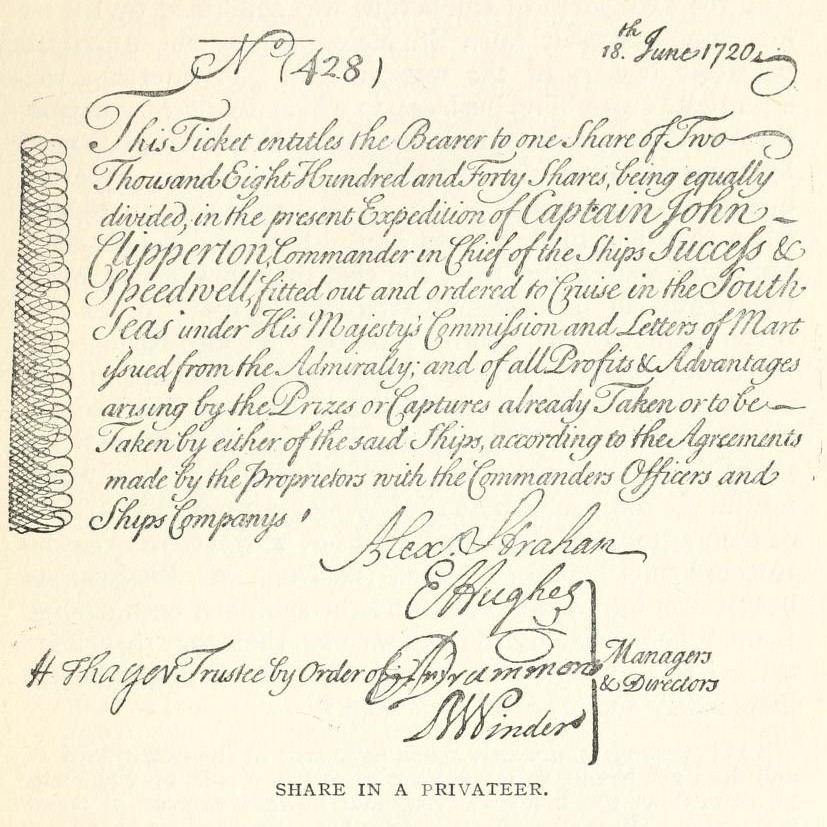 Nº (428)
18.th June 1720
This Ticket entitles the Bearer to one Share of Two
Thousand Eight Hundred and Forty Shares, being equally
divided, in the present Expedition of Captain John
Clipperton Commander in Chief of the Ships Success &
Speedwell, fitted out and ordered to Cruise in the South
Seas under His Majesty's Commission and Letters of Mart
issued from the Admiralty; and of all Profits & Advantages
arising by the Prizes or Captures already Taken or to be
Taken by either of the said Ships, according to the Agreements
made by the Proprietors with the Commanders Officers and
Ships Companys
Alex.
E Hughes
H Trustee by Order of Drummond
Winder
Managers
& Directors
SHARE IN A PRIVATEER.